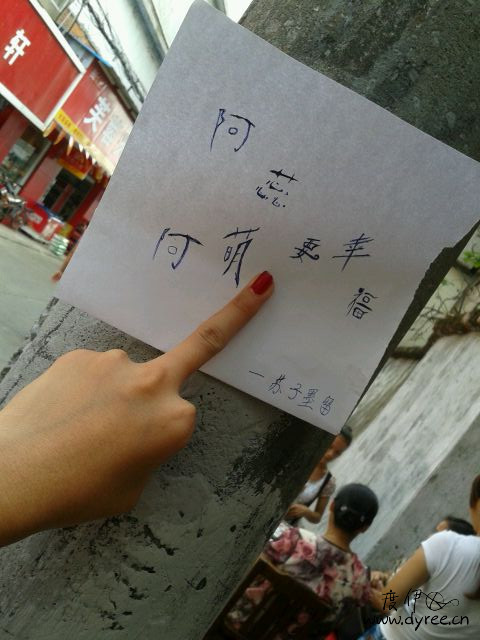 轩
阿
蕊
阿萌 要幸
福
一苏子墨留
度伊
www.dyree.cn